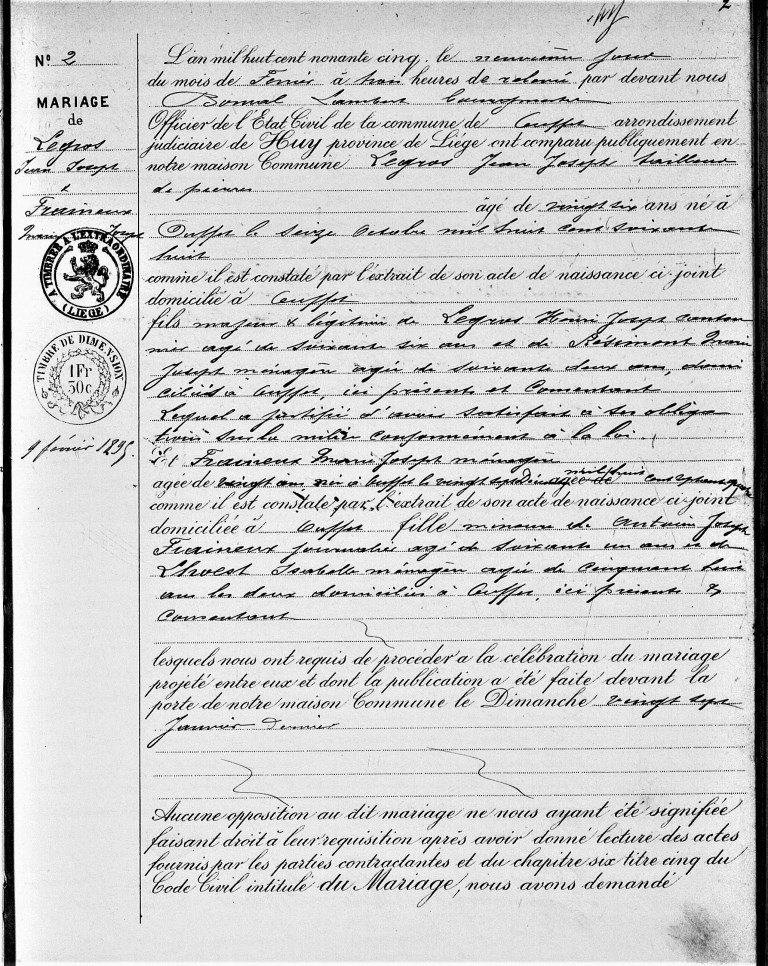 2
Nº 2
MARIAGE
de
Legros
Jean Joseph
&
Fraineux
Marie Joseph
A TIMBRER A L'EXTRAORDINAIRE
(LIEGE)
TIMBRE DE DIMENSION
1Fr
30c
9 février 1895.
L'an mil huit cent nonante cinq, le neuvième jour
du mois de Fevrier à trois heures de relevée par devant nous
Bonmal Lambert bourgmestre
Officier de l'Etat Civil de la commune de Ouffet arrondissement
judiciaire de Huy province de Liége ont comparu publiquement en
notre maison Commune Legros Jean Joseph tailleur
de pierres
âgé de vingt six ans né à
Ouffet le seize Octobre mil huit cent soixante
huit
comme il est constaté par l'extrait de son acte de naissance ci-joint
domicilié à Ouffet
fils majeur & légitime de Legros Henri Joseph canton
nier agé de soixante six ans et de Résimont Marie
Joseph ménagère agée de soixante deux ans, domi
ciliés à Ouffet, ici présents et Consentant
Lequel a justifié d'avoir satisfait à ses obliga
tions sur la milice conformément à la loi.
Et Fraineux Marie Joseph ménagère
agée de vingt ans née à Ouffet le vingt sept mil huit cent septante quatre
comme il est constaté par l'extrait de son acte de naissance ci-joint
domiciliée à Ouffet fille mineure de Antoine Joseph
Fraineux journalier agé de soixante un ans et de
Lhoest Isabelle ménagère agée de cinquante huit
ans les deux domiciliés à Ouffet, ici présents &
Consentant
lesquels nous ont requis de procéder a la célébration du mariage
projeté entre eux et dont la publication a été faite devant la
porte de notre maison Commune le Dimanche vingt sept
Janvier dernier
Aucune opposition au dit mariage ne nous ayant été signifiée
faisant droit à leur requisition après avoir donné lecture des actes
fournis par les parties contractantes et du chapitre six titre cinq du
Code Civil intitulé du Mariage, nous avons demandé